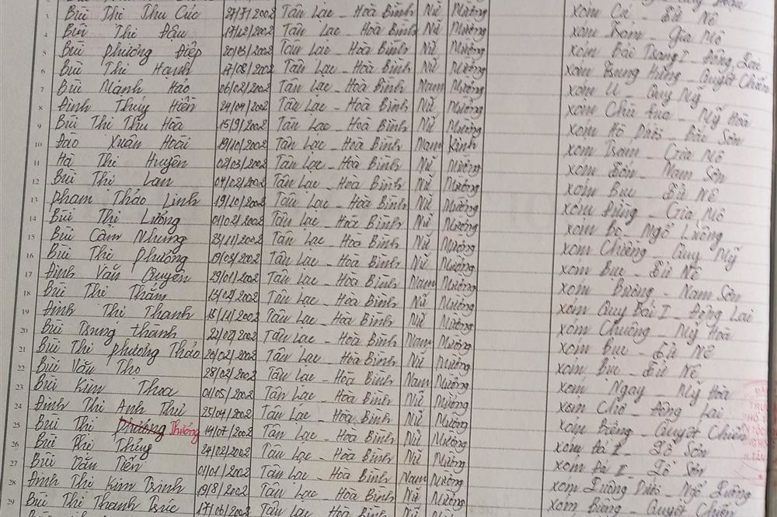 3 Bùi Thị Thu Cúc 27/7/2002 Tân Lạc - Hoà Bình Nữ Mường xóm Cá - Tử Nê
4 Bùi Thị Đậu 17/02/2002 Tân Lạc - Hoà Bình Nữ Mường xóm Trám - Gia Mô
5 Bùi Phương Điệp 20/03/2002 Tân Lạc - Hoà Bình Nữ Mường xóm Bài Trang I - Đông Lai
6 Bùi Thị Hạnh 17/08/2002 Tân Lạc - Hoà Bình Nữ Mường xóm Trung Hưng - Quyết Chiến
7 Bùi Mạnh Hảo 06/02/2002 Tân Lạc - Hoà Bình Nam Mường xóm U - Quy Mỹ
8 Đinh Thuý Hiền 24/09/2002 Tân Lạc - Hoà Bình Nữ Mường xóm Chù - Mỹ Hoà
9 Bùi Thị Thu Hoà 15/9/2002 Tân Lạc - Hoà Bình Nữ Mường xóm Hò Dưới - Bắc Sơn
10 Đào Xuân Hoài 19/10/2002 Tân Lạc - Hoà Bình Nam Kinh xóm Trám - Gia Mô
11 Hà Thị Huyên 02/03/2002 Tân Lạc - Hoà Bình Nữ Mường xóm - Nam Sơn
12 Bùi Thị Lan 04/02/2002 Tân Lạc - Hoà Bình Nữ Mường xóm Bục - Tử Nê
13 Phạm Thảo Linh 19/10/2002 Tân Lạc - Hoà Bình Nữ Mường xóm - Gia Mô
14 Bùi Thị Lường 01/02/2002 Tân Lạc - Hoà Bình Nữ Mường xóm Bo - Ngổ Luông
15 Bùi Cẩm Nhung 23/11/2002 Tân Lạc - Hoà Bình Nữ Mường xóm Chiềng - Quy Mỹ
16 Bùi Thị Phương 19/03/2002 Tân Lạc - Hoà Bình Nữ Mường xóm Bục - Tử Nê
17 Đinh Văn Quyền 29/01/2002 Tân Lạc - Hoà Bình Nam Mường xóm - Nam Sơn
18 Bùi Thị Thắm 13/02/2002 Tân Lạc - Hoà Bình Nữ Mường xóm Quy Bái I - Đông Lai
19 Đinh Thị Thanh 18/11/2002 Tân Lạc - Hoà Bình Nữ Mường xóm Chuông - Mỹ Hoà
20 Bùi Trung Thành 22/02/2002 Tân Lạc - Hoà Bình Nam Mường xóm Bục - Tử Nê
21 Bùi Thị Phương Thảo 20/02/2002 Tân Lạc - Hoà Bình Nữ Mường xóm Bục - Tử Nê
22 Bùi Văn Thọ 28/02/2002 Tân Lạc - Hoà Bình Nam Mường xóm Ngay - Mỹ Hoà
23 Bùi Kim Thoa 01/05/2002 Tân Lạc - Hoà Bình Nữ Mường xóm Chò - Đông Lai
24 Đinh Thị Anh Thư 25/04/2002 Tân Lạc - Hoà Bình Nữ Mường xóm Biệng - Quyết Chiến
25 Bùi Thị Phương Thương 14/07/2002 Tân Lạc - Hoà Bình Nữ Mường xóm Đá II - Lỗ Sơn
26 Bùi Thị Thuỷ 24/02/2002 Tân Lạc - Hoà Bình Nữ Mường xóm Đá II - Lỗ Sơn
27 Bùi Văn Tiến 01/01/2002 Tân Lạc - Hoà Bình Nam Mường xóm Luông Dưới - Ngổ Luông
28 Đinh Thị Kim Trinh 19/8/2002 Tân Lạc - Hoà Bình Nữ Mường xóm Biệng - Quyết Chiến
29 Bùi Thị Thanh Trúc 17/06/2002 Tân Lạc - Hoà Bình Nữ Mường